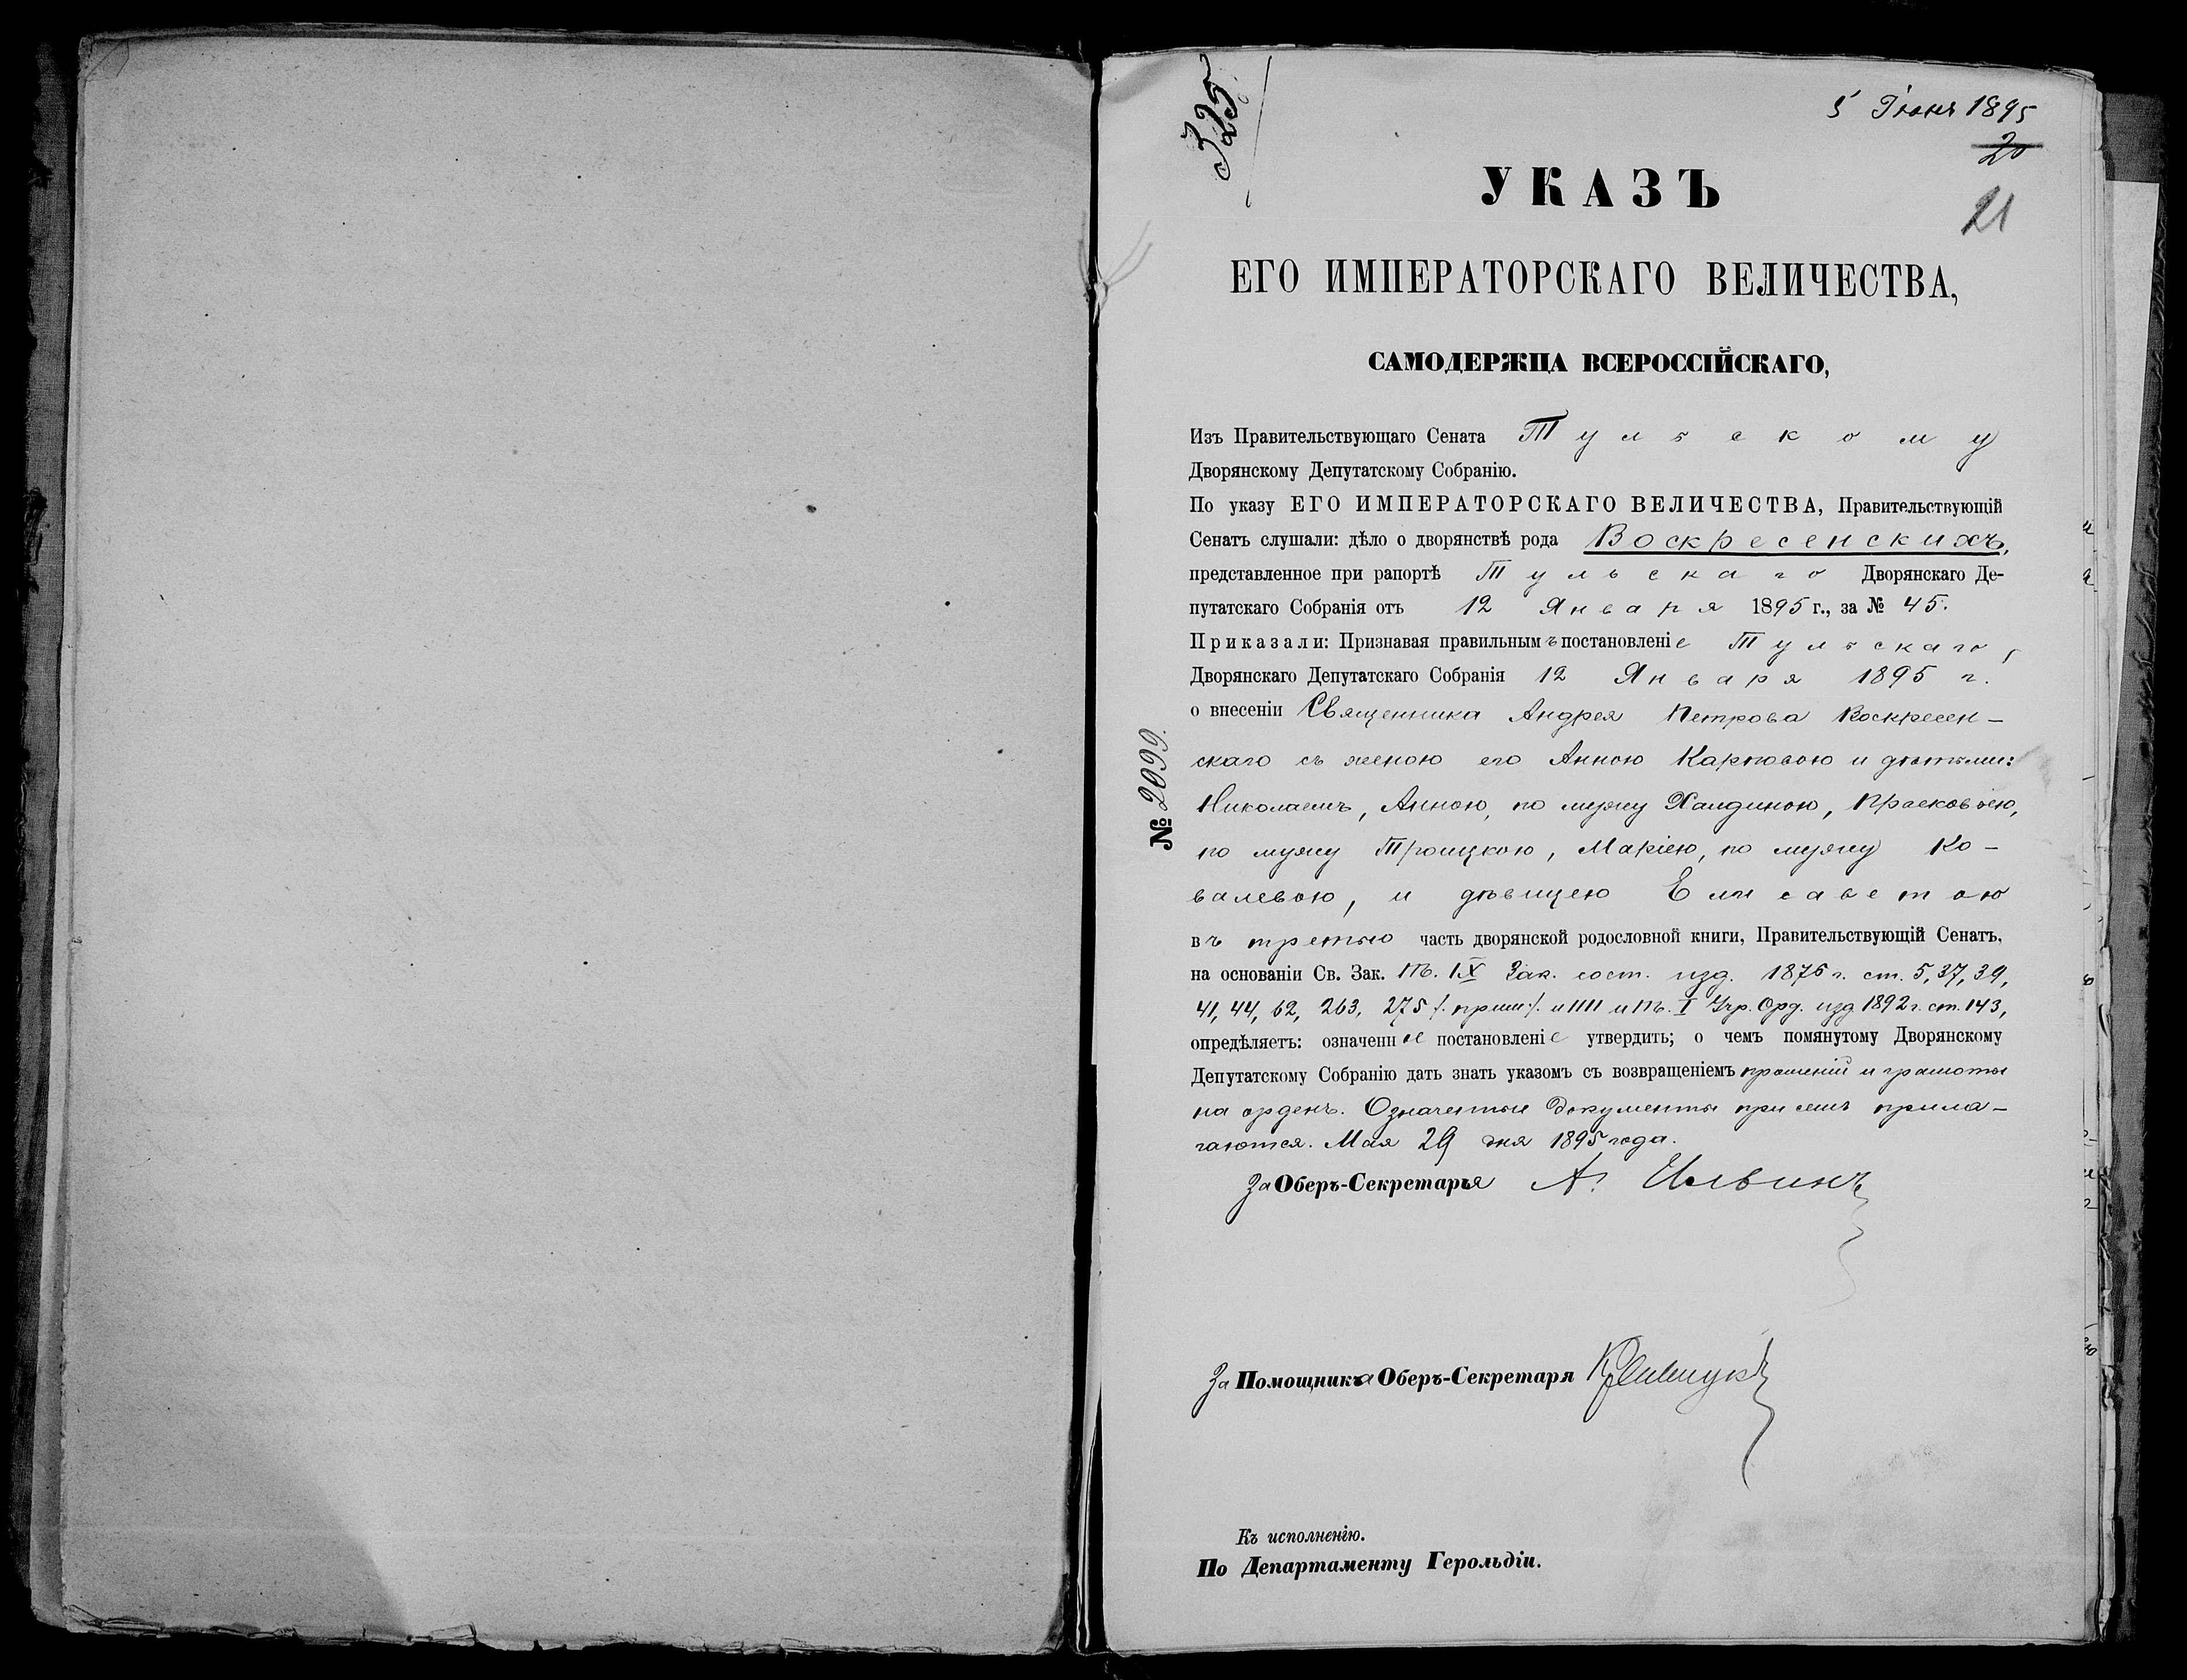 325
5 Іюня 1895
20
21
УКАЗЪ
ЕГО ИМПЕРАТОРСКАГО ВЕЛИЧЕСТВА,
САМОДЕРЖЦА ВСЕРОССІЙСКАГО,
Изъ Правительствующаго Сената Тульскому
Дворянскому Депутатскому Собранію.
По указу ЕГО ИМПЕРАТОРСКАГО ВЕЛИЧЕСТВА, Правительствующій
Сенатъ слушали: дѣло о дворянствѣ рода Воскресенскихъ,
представленное при рапортѣ Тульскаго Дворянскаго Де-
путатскаго Собранія отъ 12 Января 1895 г., за № 45.
Приказали: Признавая правильнымъ постановленіе Тульскаго
Дворянскаго Депутатскаго Собранія 12 Января 1895 г.
о внесеніи Священника Андрея Петрова Воскресен-
скаго съ женою его Анною Карповою и дѣтьми:
Николаемъ, Анною, по мужу Халдиною, Прасковьею,
по мужу Троицкою, Маріею, по мужу Ко-
валевою, и дѣвицею Елисаветою
въ третью часть дворянской родословной книги, Правительствующій Сенатъ,
на основаніи Св. Зак. Т. IX Зак. сост. изд. 1876 г. ст. 5, 37, 39,
41, 44, 62, 263, 275 /. прим./. и 1111 и Т. I Учр. Орд. изд 1892 г. ст. 143,
опредѣляетъ: означенное постановленіе утвердить; о чемъ помянутому Дворянскому
Депутатскому Собранію дать знать указомъ съ возвращеніемъ прошеній и грамоты
на орденъ. Означенные документы при семъ прила-
гаются. Мая 29 дня 1895 года.
За Оберъ-Секретаря А. Ильинъ
За Помощника Оберъ-Секретаря
№ 2099.
Къ исполненію.
По Департаменту Герольдіи.